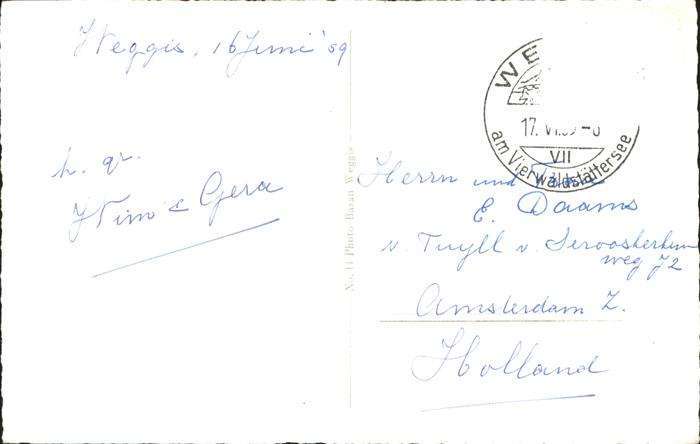 Weggis, 16 Juni '59
h. gr.
Wim & Gera
No. 11 Photo Bazar Weggis
WE
17. VI.59 -8
VII
am Vierwaldstättersee
Herrn und Frau
E. Daams
v. Tuyll v. Serooskerken
weg 72
Amsterdam Z.
Holland